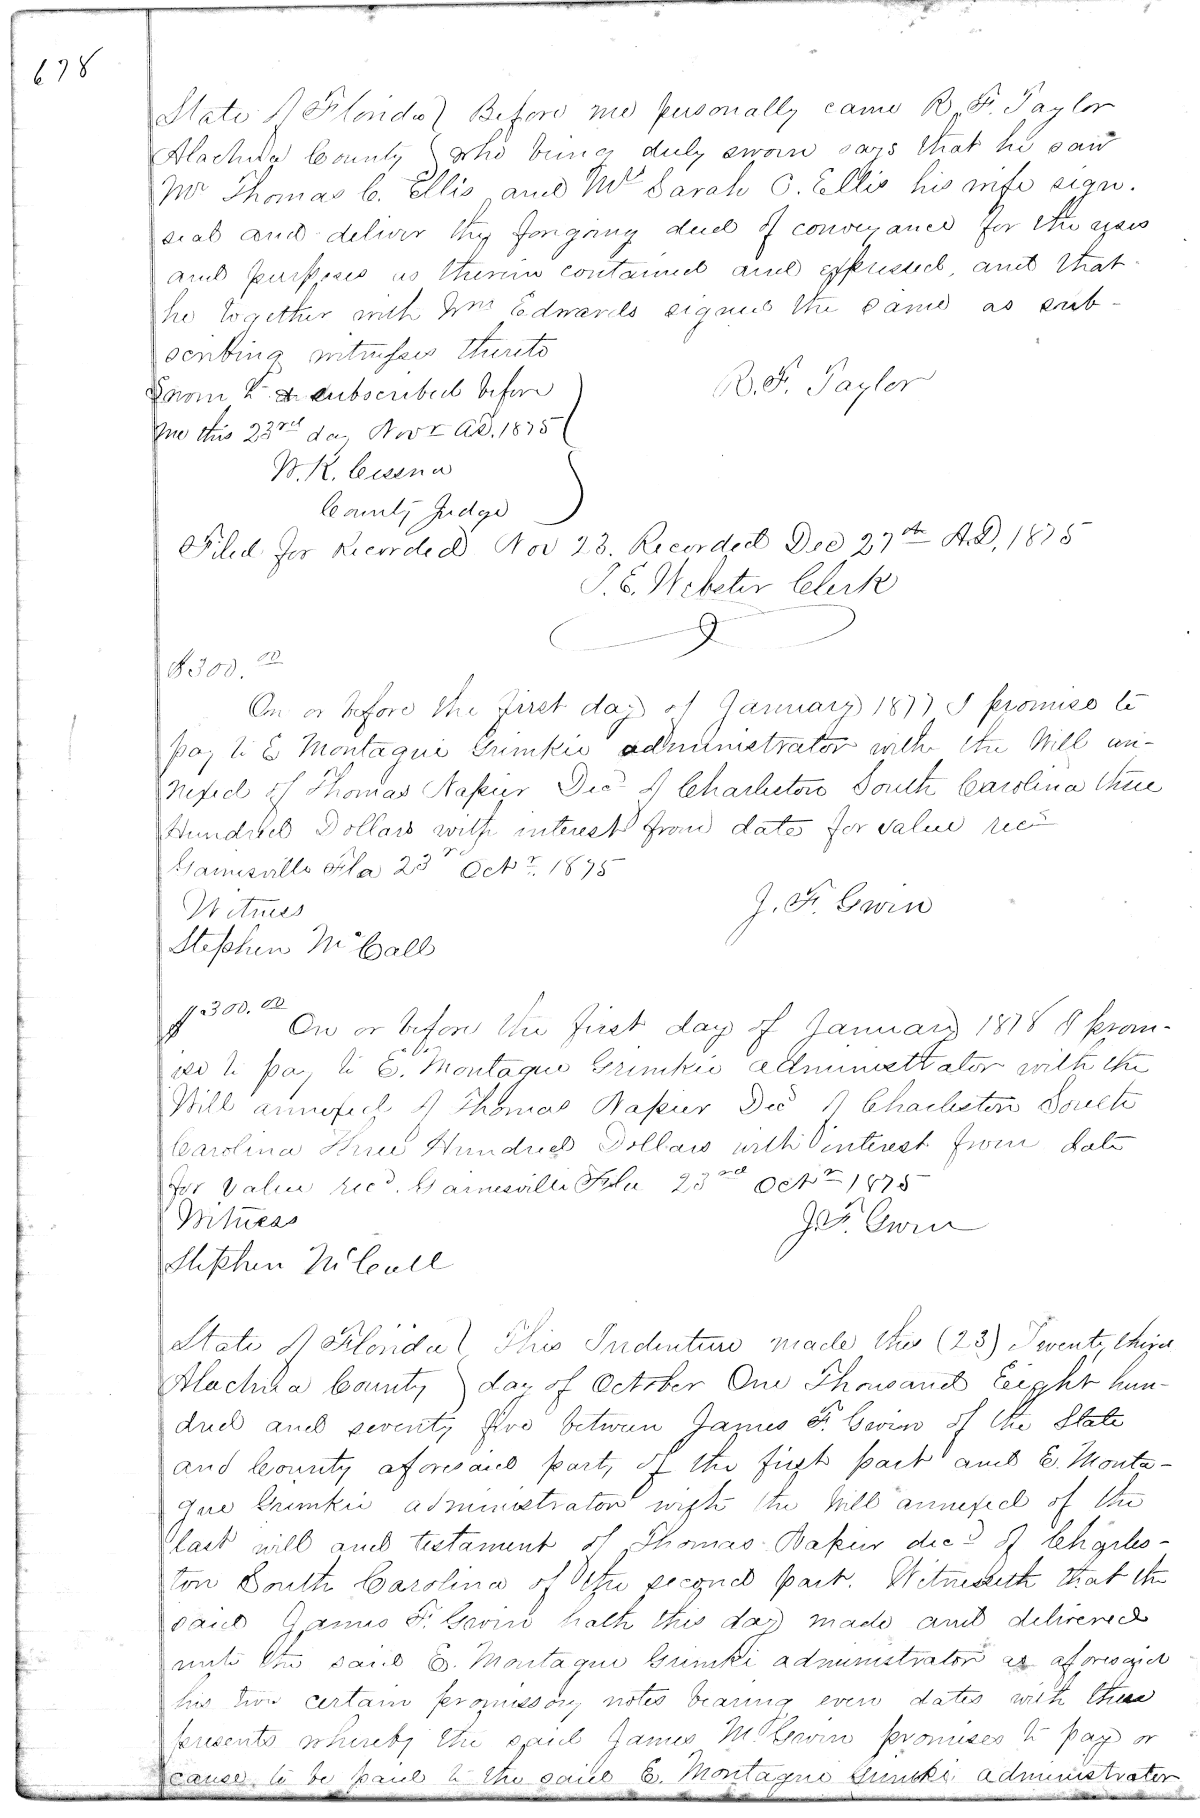 678
State of Florida } Before me personally came R. F. Taylor
Alachua County } who being duly sworn says that he saw
Mr Thomas C. Ellis and Mrs Sarah C. Ellis his wife sign.
seal and deliver the forgoing deed of conveyance for the uses
and purposes as therein contained and expressed, and that
he together with Wm Edwards signed the same as sub-
scribing witnesses thereto
Sworn to & subscribed before
R. F. Taylor
me this 23rd day Novr AD. 1875
W. K. Cessna
County Judge
Filed for Recorded Nov 23. Recorded Dec 27th A.D. 1875
J. E. Webster Clerk
$300.00
On or before the first day of January 1877 I promise to
pay to E Montague Grimkie administrator with the Will an-
nexed of Thomas Napier Decd of Charleston South Carolina three
Hundred Dollars with interest from date for value recd
Gainesville Fla 23r Octr. 1875
Witness
J. F. Gwin
Stephen McCall
$300.00
On or before the first day of January 1878 I prom-
ise to pay to E. Montague Grimkie administrator with the
Will annexed of Thomas Napier Decd of Charleston South
Carolina Three Hundred Dollars with interest from date
for value recd. Gainesville Fla 23rd Octr 1875
Witness
J. F. Gwin
Stephen McCall
State of Florida } This Indenture made this (23) Twenty third
Alachua County } day of October One Thousand Eight hun-
dred and seventy five between James F. Gwin of the State
and County aforesaid party of the first part and E. Monta-
gue Grimkie administrator with the Will annexed of the
last will and testament of Thomas Napier decd of Charles-
ton South Carolina of the second part. Witnesseth that the
said James F. Gwin hath this day made and delivered
unto the said E. Montague Grimki administrator as aforesaid
his two certain promissory notes bearing even dates with these
presents whereby the said James M. Gwin promises to pay or
cause to be paid to the said E. Montague Grimki administrator